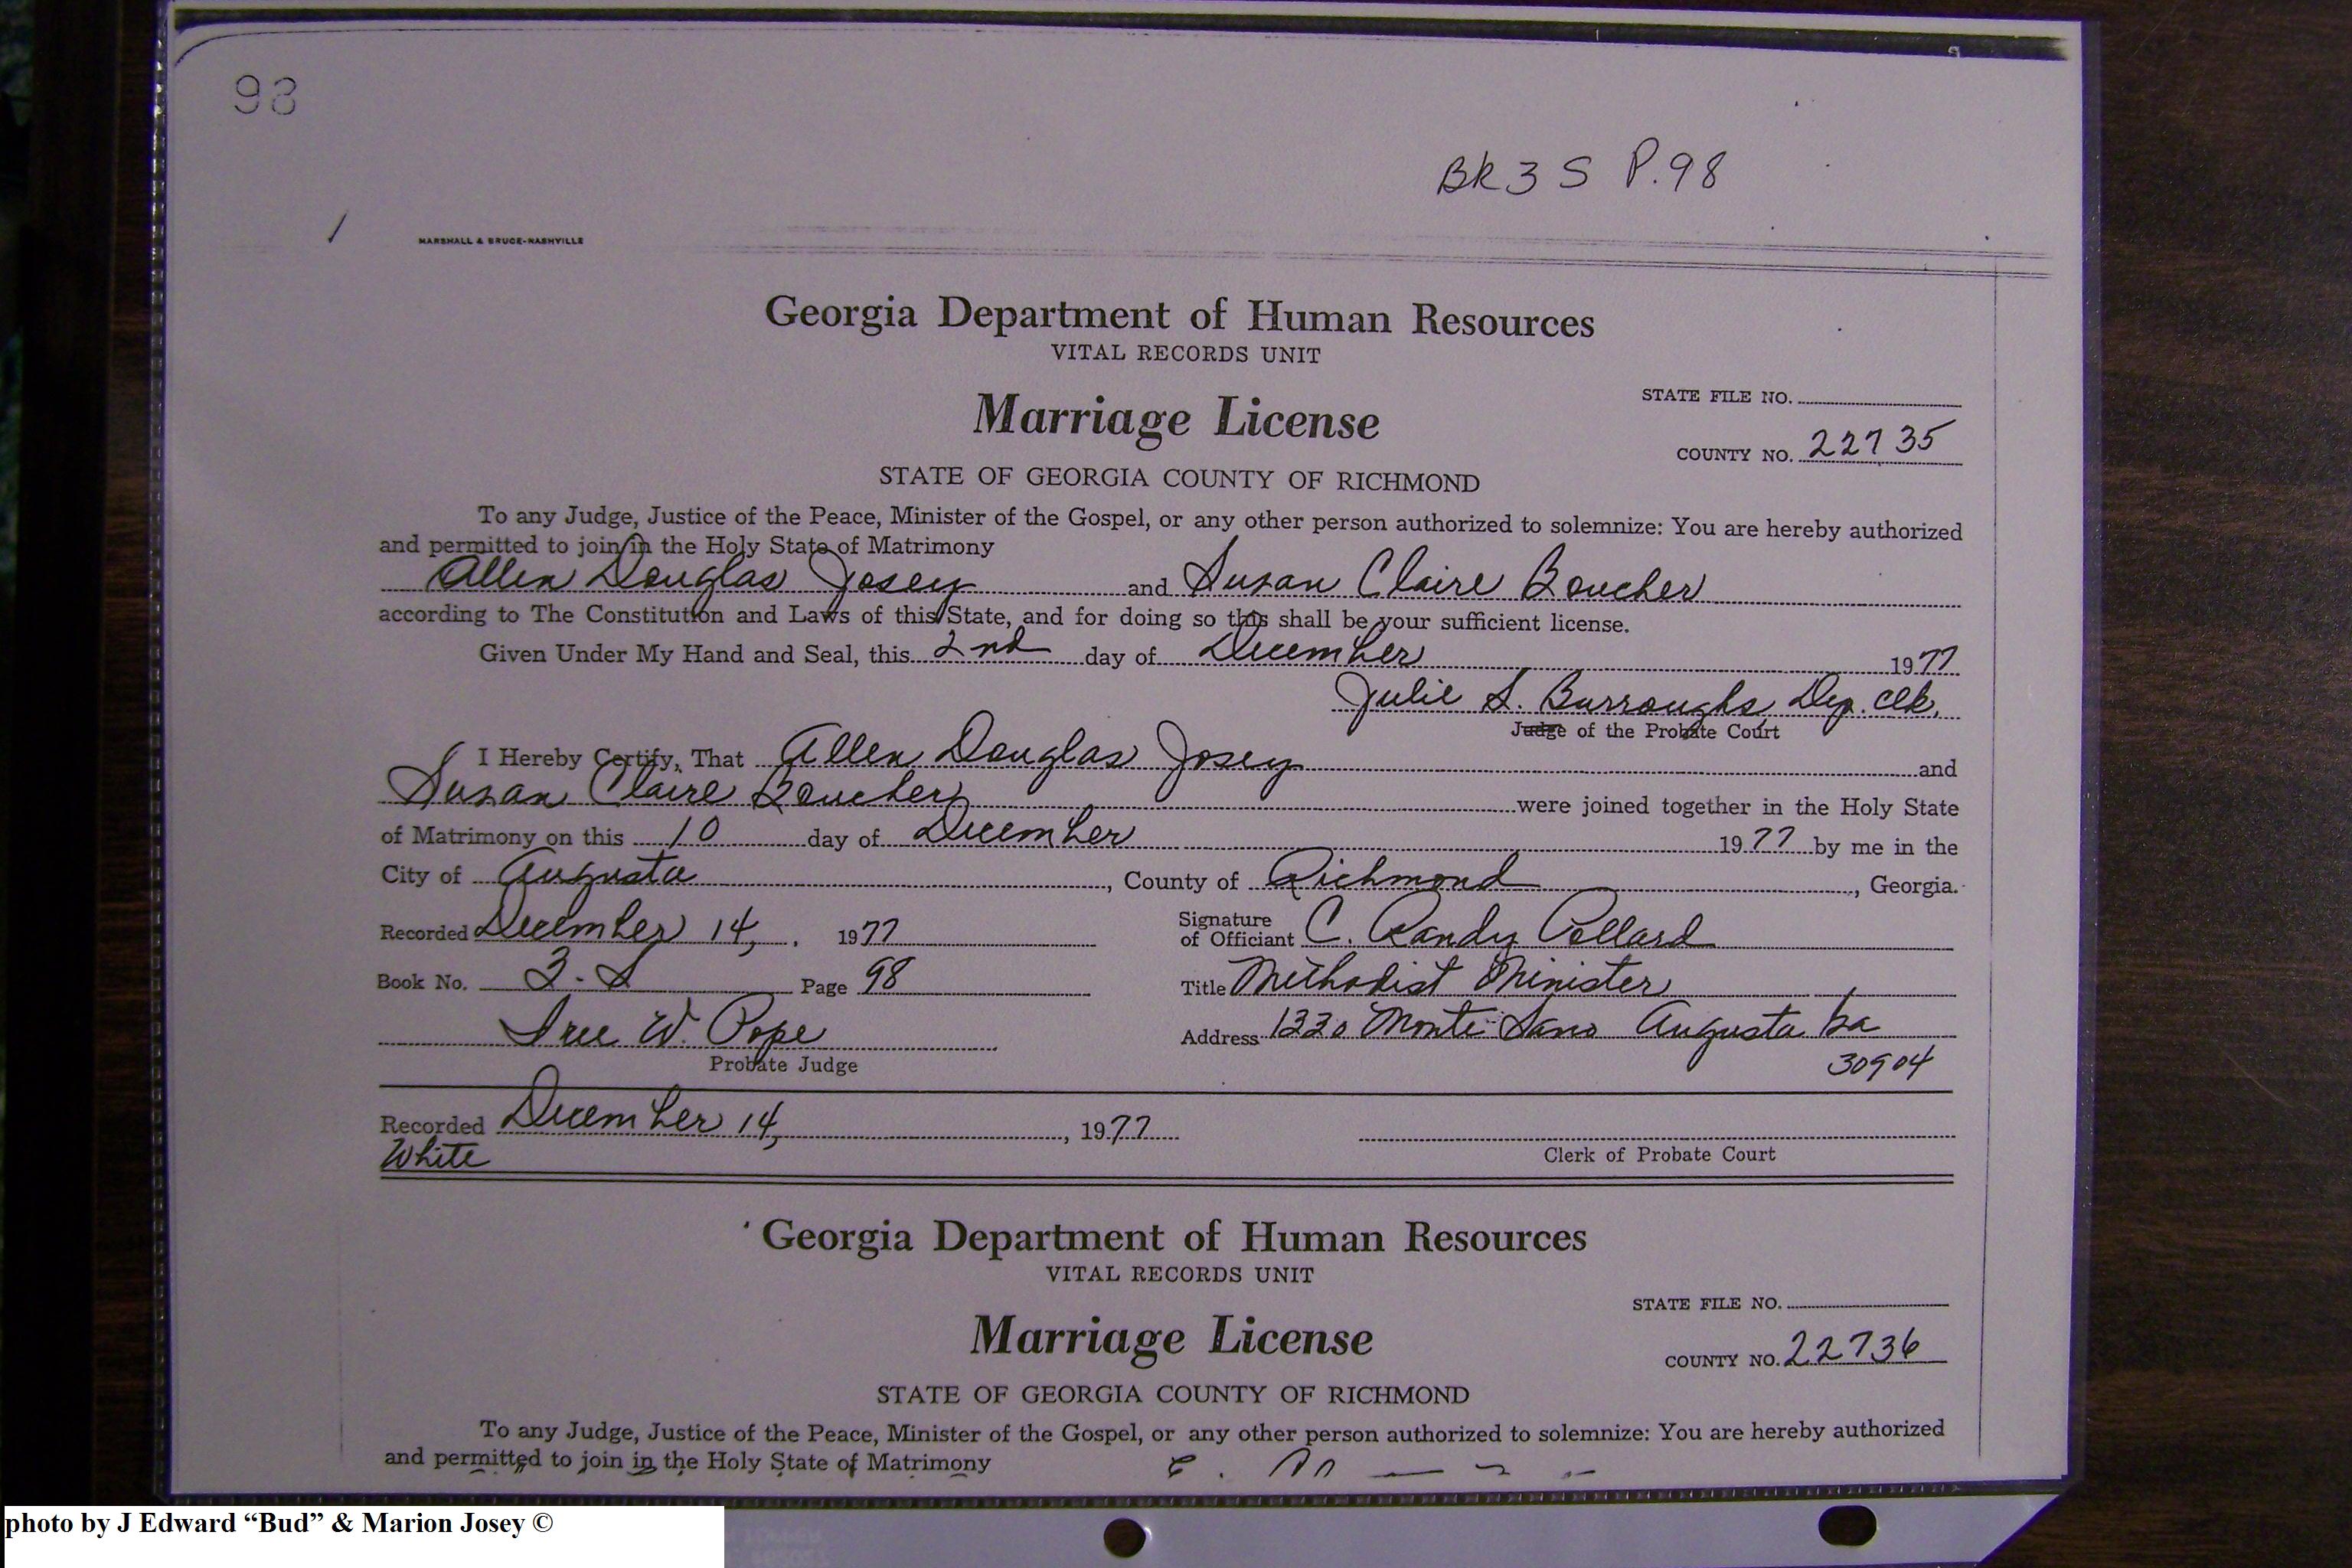 98
BK 3 S P. 98
MARSHALL & BRUCE-NASHVILLE
Georgia Department of Human Resources
VITAL RECORDS UNIT
Marriage License
STATE FILE NO.
COUNTY NO. 22735
STATE OF GEORGIA COUNTY OF RICHMOND
To any Judge, Justice of the Peace, Minister of the Gospel, or any other person authorized to solemnize: You are hereby authorized
and permitted to join in the Holy State of Matrimony
Allen Douglas Josey and Susan Claire Boucher
according to The Constitution and Laws of this State, and for doing so this shall be your sufficient license.
Given Under My Hand and Seal, this 2nd day of December 1977
Julie S. Burroughs, Dep. Clk.
Judge of the Probate Court
I Hereby Certify, That Allen Douglas Josey and
Susan Claire Boucher were joined together in the Holy State
of Matrimony on this 10 day of December 1977 by me in the
City of Augusta, County of Richmond, Georgia.
Recorded December 14, 1977
Signature of Officiant C. Randy Pollard
Book No. 3-S Page 98
Title Methodist Minister
W. Pope
Probate Judge
Address 1330 Monte Sano Augusta Ga
30904
Recorded December 14, 1977
White
Clerk of Probate Court
Georgia Department of Human Resources
VITAL RECORDS UNIT
Marriage License
STATE FILE NO.
COUNTY NO. 22736
STATE OF GEORGIA COUNTY OF RICHMOND
To any Judge, Justice of the Peace, Minister of the Gospel, or any other person authorized to solemnize: You are hereby authorized
and permitted to join in the Holy State of Matrimony
photo by J Edward “Bud” & Marion Josey ©